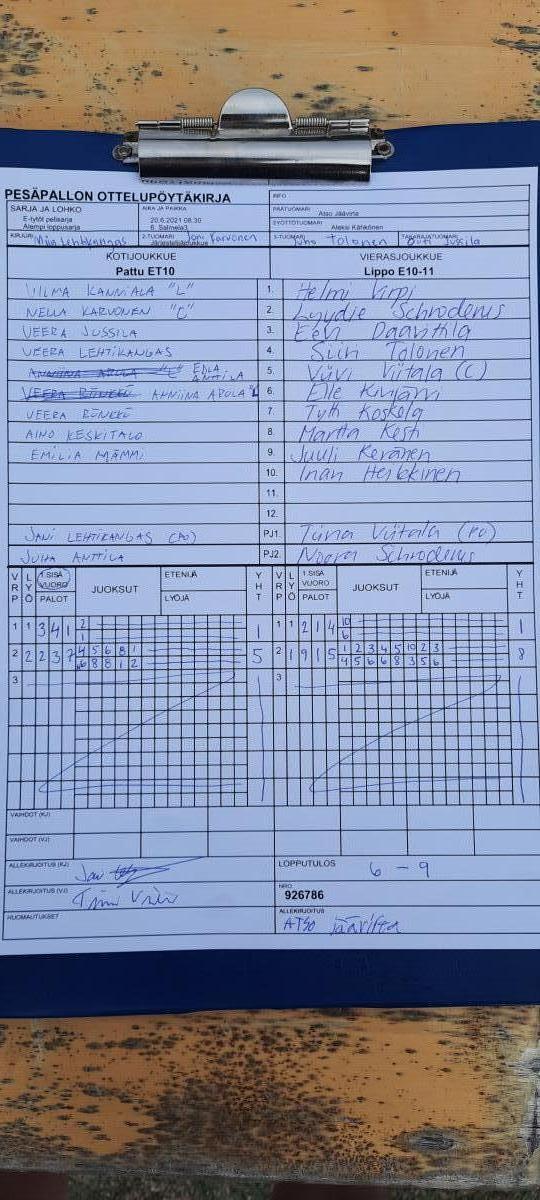 PESÄPALLON OTTELUPÖYTÄKIRJA
INFO
SARJA JA LOHKO
E-tytöt pelisarja
Alempi loppusarja
AIKA JA PAIKKA
20.6.2021 08.30
6. Salmela3
PÄÄTUOMARI
Atso Jäävirta
SYÖTTÖTUOMARI
Aleksi Karkkonen
KIRJURI Miia Lehtikangas
2-TUOMARI Jani Karvonen
Järjestelijäjoukkue
3-TUOMARI Juha Tolonen
TAKARAJATUOMARI Outi Jussila
KOTIJOUKKUE VIERASJOUKKUE
Pattu ET10 Lippo E10-11
VILMA KANNIALA "L" 1. Helmi Virpi
NELLA KARVONEN "C" 2. Lyydie Schroderus
VEERA JUSSILA 3. Eevi Daavittila
VEERA LEHTIKANGAS 4. Siiri Tolonen
ANNIINA AROLA "L" EDLA ANTTILA 5. Viivi Viitala (C)
VEERA RÖNKKÖ ANNIINA AROLA "L" 6. Elle Kinjärvi
VEERA RÖNKKÖ 7. Tytti Koskela
AINO KESKITALO 8. Martta Kesti
EMILIA MÄMMI 9. Juuli Keränen
10. Heikkinen
11.
12.
JANI LEHTIKANGAS (PJ) PJ1. Tiina Viitala (PJ)
JUHA ANTTILA PJ2. Noora Schroderus
VRP LYÖ 1.SISÄ VUORO PALOT JUOKSUT ETENIJÄ LYÖJÄ YHT VRP LYÖ 1.SISÄ VUORO PALOT JUOKSUT ETENIJÄ LYÖJÄ YHT
1 1 3 4 1 2 1 1 1 1 2 1 4 10 6 1
2 2 2 3 7 4 5 6 8 1 5 2 1 9 1 5 1 2 3 4 5 10 2 3 8
6 8 8 1 2 4 5 6 6 8 3 5 6
3 3
VAIHDOT (KJ)
VAIHDOT (VJ)
ALLEKIRJOITUS (KJ) LOPPUTULOS 6 - 9
ALLEKIRJOITUS (VJ) NRO
926786
HUOMAUTUKSET ALLEKIRJOITUS
ATSO Jäävirta